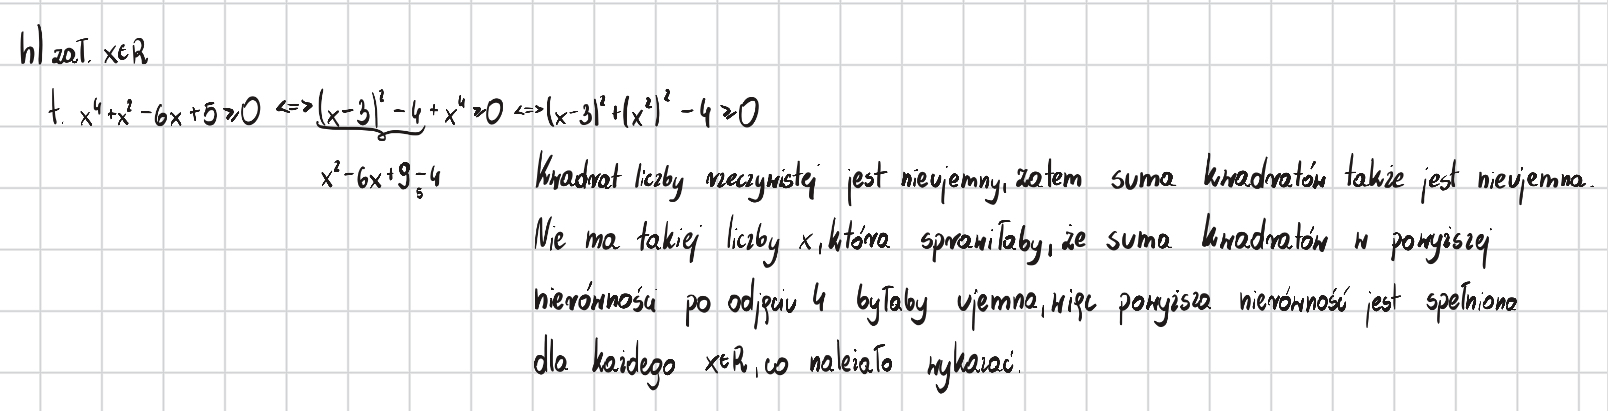 h) zał. x∈R
t. x⁴+x²-6x+5≥0 <=> (x-3)²-4+x⁴≥0 <=> (x-3)²+(x²)²-4≥0
x²-6x+9-4
5
Kwadrat liczby rzeczywistej jest nieujemny, zatem suma kwadratów także jest nieujemna.
Nie ma takiej liczby x, która sprawiłaby, że suma kwadratów w powyższej
nierówności po odjęciu 4 byłaby ujemna, więc powyższa nierówność jest spełniona
dla każdego x∈R, co należało wykazać.